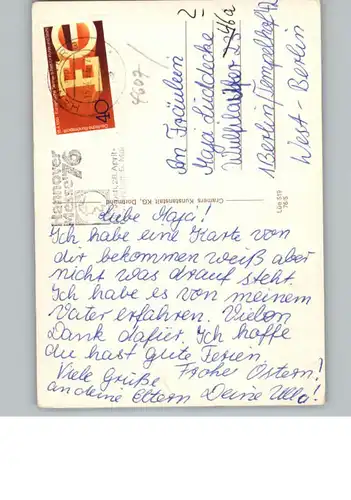 Liebe Maja!
Ich habe eine Karte von
dir bekommen weiß aber
nicht was drauf steht.
Ich habe es von meinem
Vater erfahren. Vielen
Dank dafür. Ich hoffe
du hast gute Ferien
Viele Grüße Frohe Ostern!
an deine Eltern Deine Ulla!
An Fräulein
Maja Lüddecke
46a
1 Berlin/Tempelhof 42
West-Berlin
Cramers Kunstanstalt KG, Dortmund
Hannover
Messe 76
40
4607/